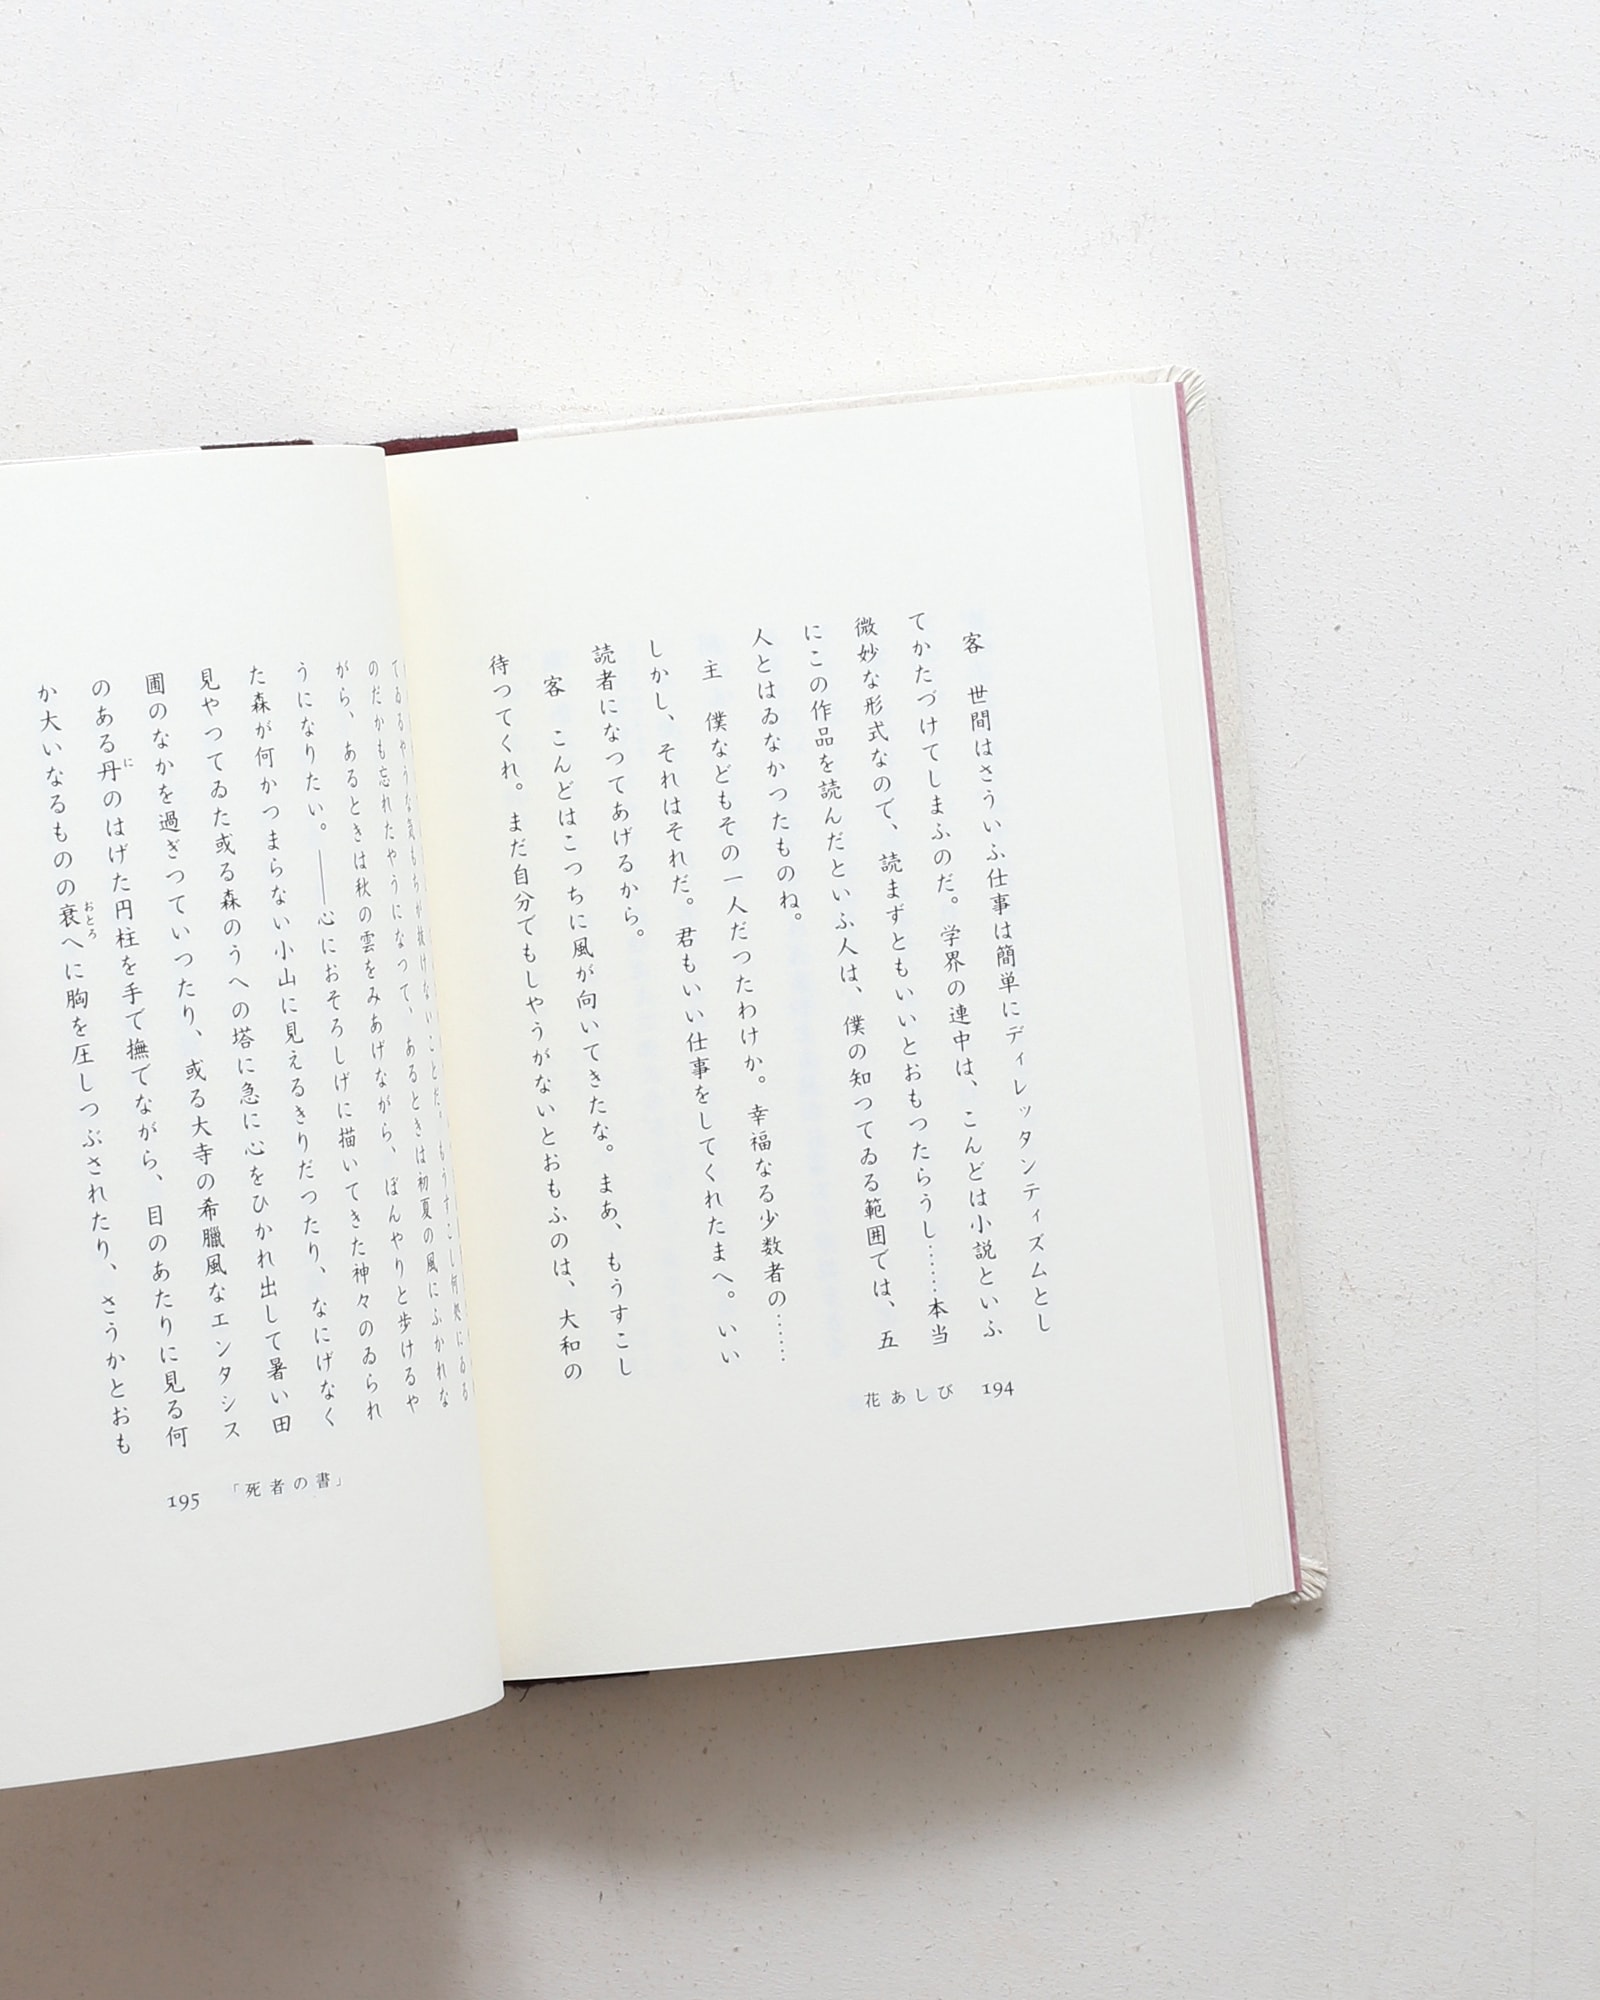 客　世間はさういふ仕事は簡単にディレッタンティズムとし
てかたづけてしまふのだ。学界の連中は、こんどは小説といふ
微妙な形式なので、読まずともいいとおもつたらうし……本当
にこの作品を読んだといふ人は、僕の知つてゐる範囲では、五
人とはゐなかつたものね。
主　僕などもその一人だつたわけか。幸福なる少数者の……
しかし、それはそれだ。君もいい仕事をしてくれたまへ。いい
読者になつてあげるから。
客　こんどはこつちに風が向いてきたな。まあ、もうすこし
待つてくれ。まだ自分でもしやうがないとおもふのは、大和の
花あしび　194
てゐるやうな気もちが抜けないことだ。もうすこし何処にゐる
のだかも忘れたやうになつて、あるときは初夏の風にふかれな
がら、あるときは秋の雲をみあげながら、ぼんやりと歩けるや
うになりたい。――心におそろしげに描いてきた神々のゐられ
た森が何かつまらない小山に見えるきりだつたり、なにげなく
見やつてゐた或る森のうへの塔に急に心をひかれ出して暑い田
圃のなかを過ぎつていつたり、或る大寺の希臘風なエンタシス
のある丹のはげた円柱を手で撫でながら、目のあたりに見る何
か大いなるものの衰へに胸を圧しつぶされたり、さうかとおも
に
おとろ
195　「死者の書」